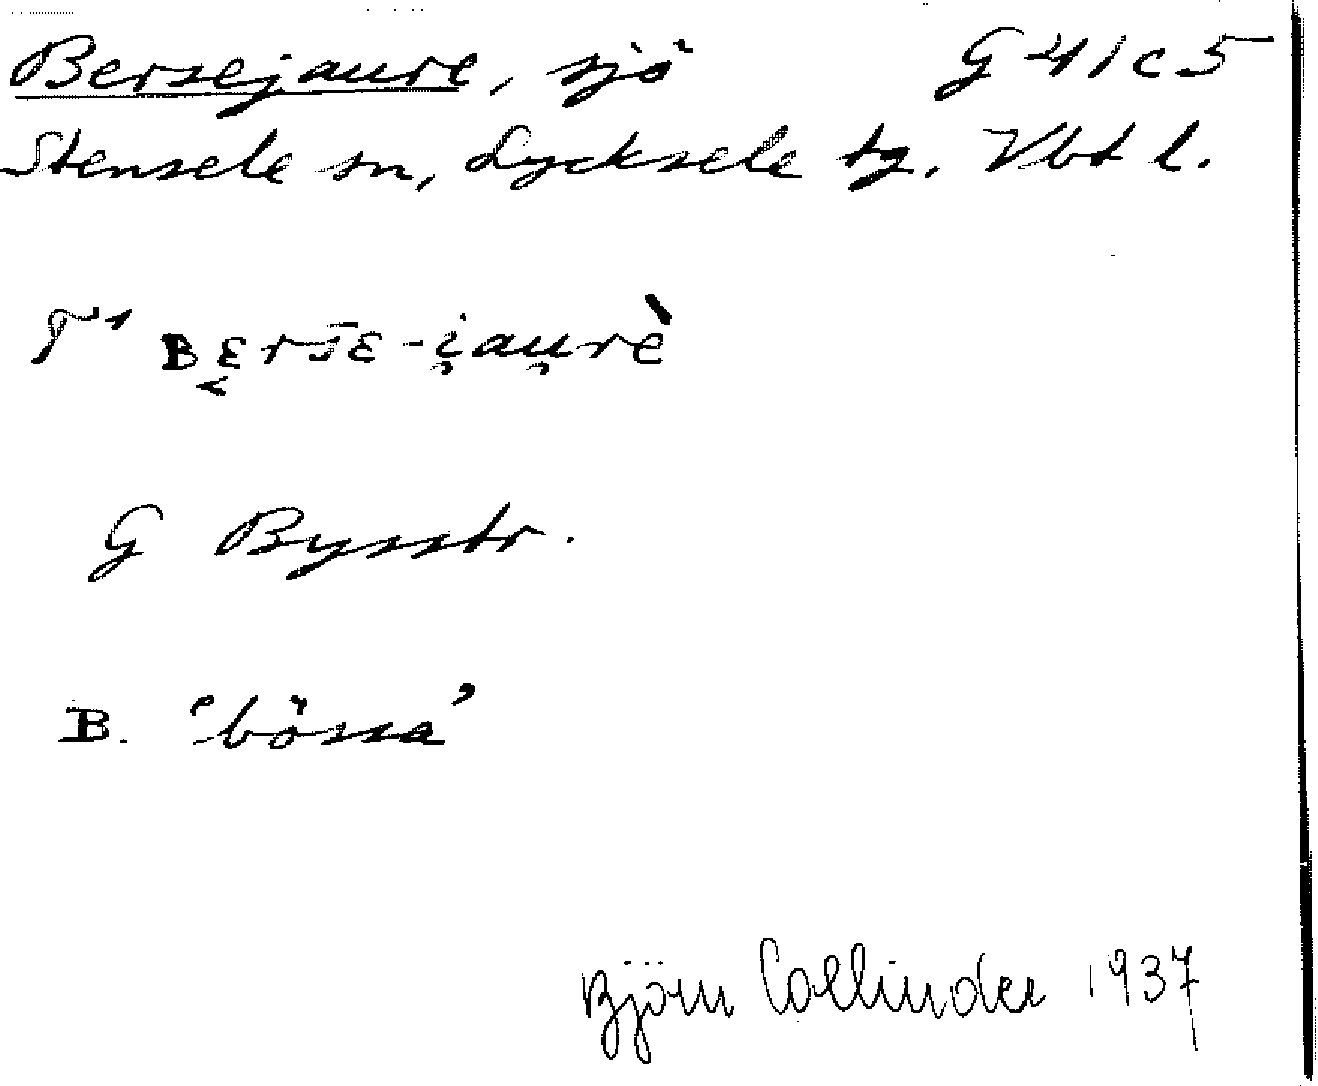 Bersejaure, sjö G 41 c 5
Stensele sn, Lycksele tg. Vbt l.
G Bysstr.
B. 'bössa'
Björn Collinder 1937